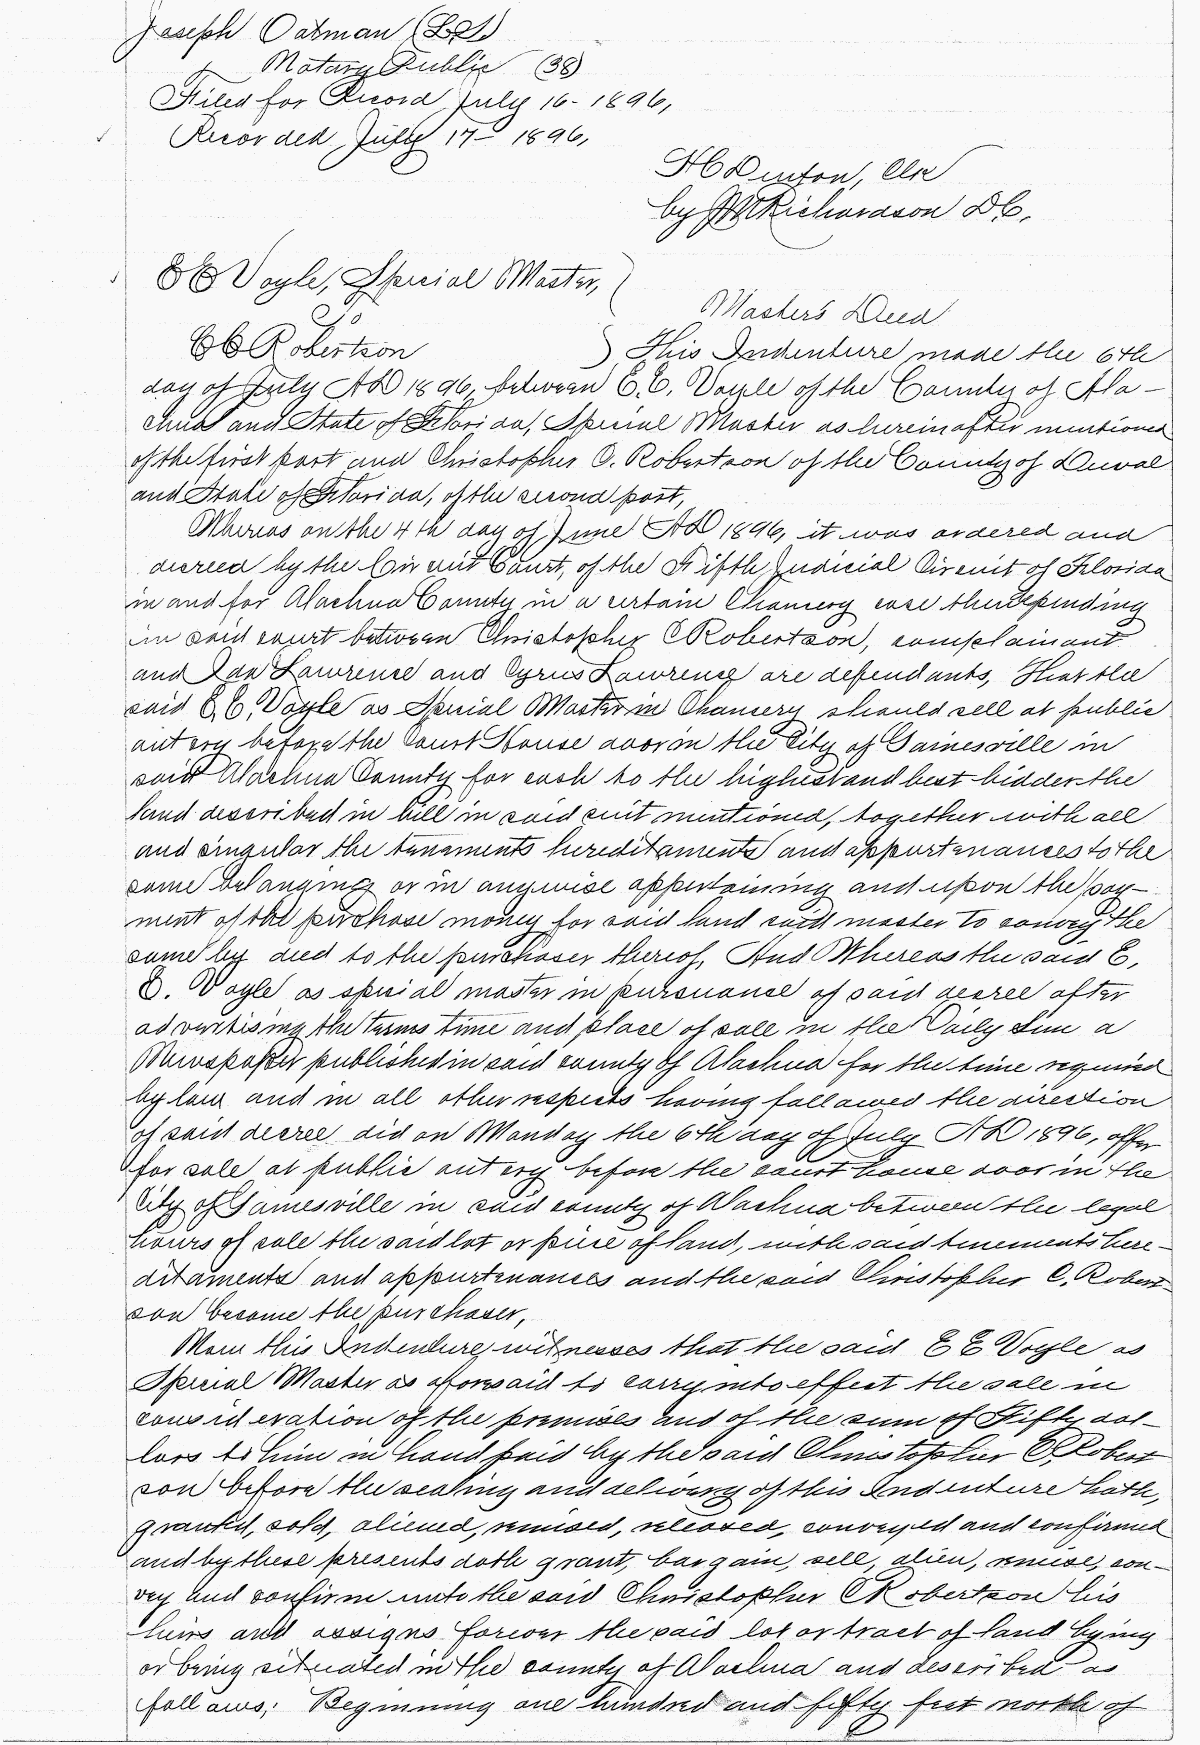 Joseph Oatman (LS)
Notary Public (38)
Filed for Record July 16 - 1896,
Recorded July 17 - 1896,
H C Denton, Clk
by J M Richardson D C,
E E Voyle, Special Master,
To
Master's Deed
C C Robertson
This Indenture made the 6th
day of July AD 1896, between E. E. Voyle of the County of Ala-
chua and State of Florida, Special Master as herein after mentioned
of the first part and Christopher C. Robertson of the County of Duval
and State of Florida, of the second part,
Whereas on the 4th day of June AD 1896, it was ordered and
decreed by the Circuit Court, of the Fifth Judicial Circuit of Florida
in and for Alachua County in a certain Chancery case then depending
in said court between Christopher C Robertson, complainant
and Ida Lawrence and Cyrus Lawrence are defendants, That the
said E. E. Voyle as Special Master in Chancery should sell at public
out cry before the Court House door in the City of Gainesville in
said Alachua County for cash to the highest and best bidder the
land described in bill in said suit mentioned, together with all
and singular the tenaments hereditaments and appurtenances to the
same belonging or in anywise appertaining and upon the pay-
ment of the purchase money for said land said master to convey the
same by deed to the purchaser thereof, And Whereas the said E.
E. Voyle as special master in pursuance of said decree after
advertising the terms time and place of sale in the Daily Sun a
Newspaper published in said county of Alachua for the time required
by law and in all other respects having followed the direction
of said decree did on Monday the 6th day of July AD 1896, offer
for sale at public out cry before the court house door in the
City of Gainesville in said county of Alachua between the legal
hours of sale the said lot or piece of land, with said tenements here-
ditaments and appurtenances and the said Christopher C. Robert-
son become the purchaser,
Now this Indenture witnesses that the said E E Voyle as
Special Master as aforesaid to carry into effect the sale in
consideration of the premises and of the sum of Fifty dol-
lars to him in hand paid by the said Christopher C. Robert
son before the sealing and delivery of this Indenture hath,
granted, sold, aliened, remised, released, conveyed and confirmed
and by these presents doth grant, bargain, sell, alien, remise, con-
vey and confirm unto the said Christopher C Robertson his
heirs and assigns forever the said lot or tract of land lying
or being situated in the county of Alachua and described as
follows: Beginning one hundred and fifty feet north of